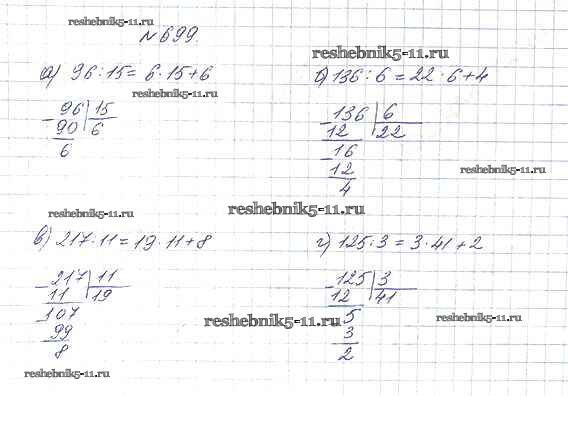 reshebnik5-11.ru
№699.
reshebnik5-11.ru
а) 96:15=6·15+6
б) 136:6=22·6+4
reshebnik5-11.ru
96 | 15
90 | 6
6
136 | 6
12 | 22
16
12
4
reshebnik5-11.ru
reshebnik5-11.ru
reshebnik5-11.ru
в) 217:11=19·11+8
г) 125:3=3·41+2
217 | 11
11 | 19
107
99
8
125 | 3
12 | 41
5
3
2
reshebnik5-11.ru
reshebnik5-11.ru
reshebnik5-11.ru